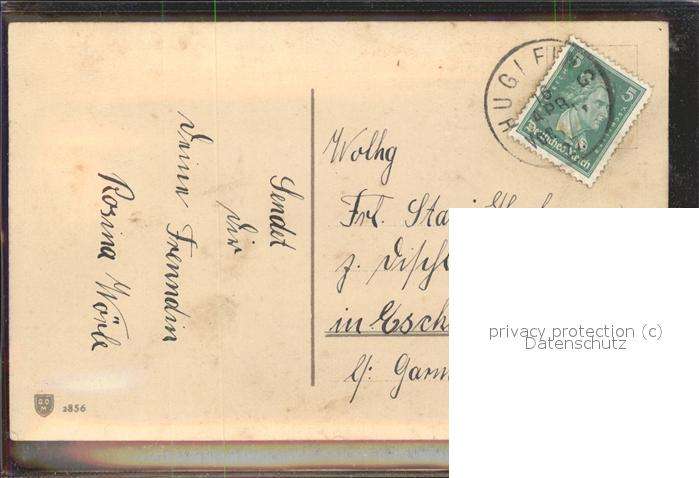 Sendet
Dir
Deine Freundin
Rosina Wörle
Wolhg
Frl.
z.
in Esch
b/: Garm
HUGLFING
5
5
Deutsches Reich
2856
privacy protection (c)
Datenschutz